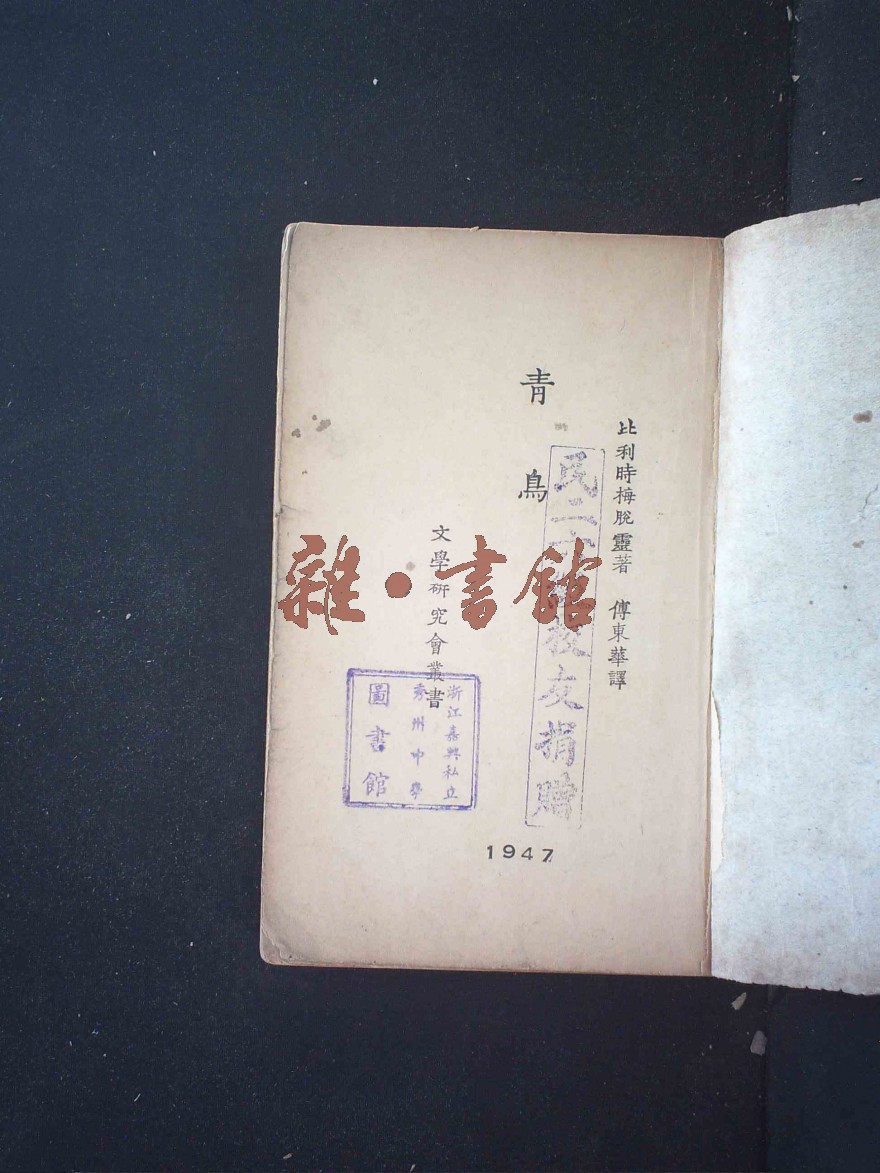 比利時梅脫靈著 傅東華譯
青鳥
文學研究會叢書
1947
民二
校友捐贈
浙江嘉興私立
秀州中學
圖書館
雜·書館